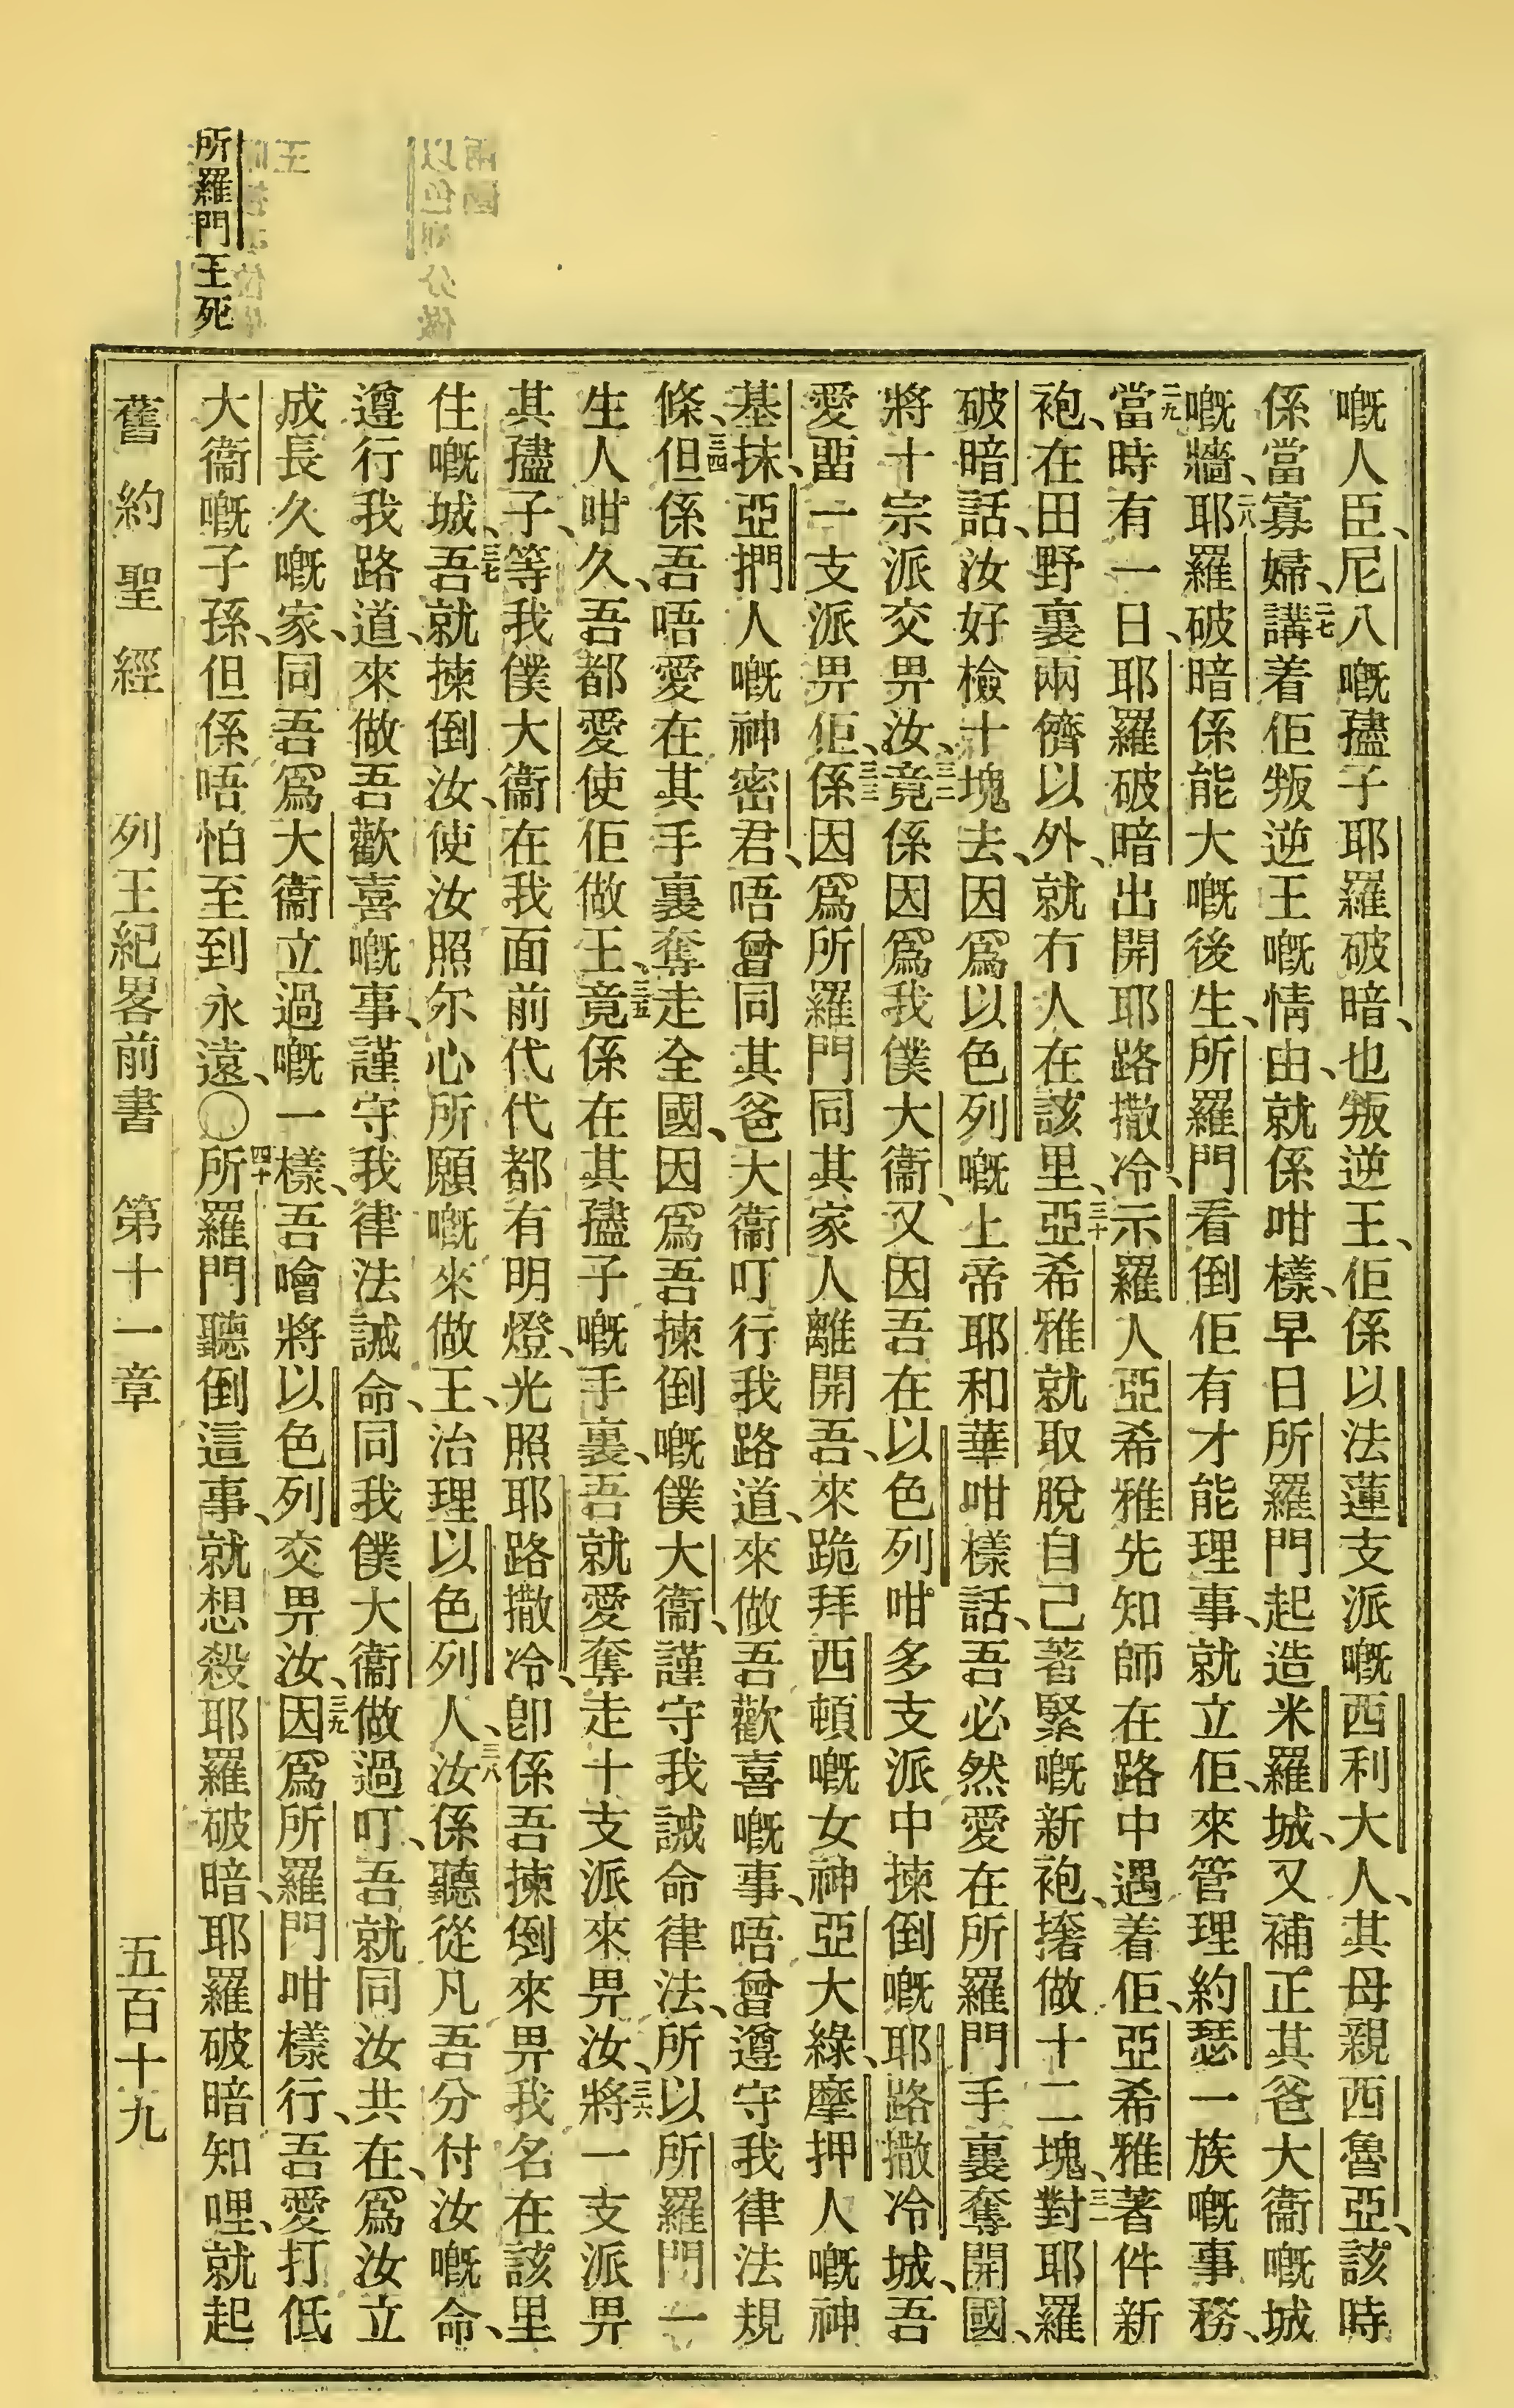 嘅人臣、尼八嘅孻子耶羅破暗、也叛逆王、佢係以法蓮支派嘅西利大人、其母親西魯亞、該時
係當寡婦、二七講着佢叛逆王嘅情由、就係咁樣、早日所羅門起造米羅城、又補正其爸大衞嘅城
嘅牆、二八耶羅破暗係能大嘅後生、所羅門看倒佢有才能理事、就立佢、來管理約瑟一族嘅事務、
二九當時有一日、耶羅破暗出開耶路撒冷、示羅人亞希雅先知師在路中遇着佢、亞希雅著件新
袍、在田野裏兩儕以外、就冇人在該里、三十亞希雅就取脫自己著緊嘅新袍、撦做十二塊、三一對耶羅
破暗話、汝好檢十塊去、因爲以色列嘅上帝耶和華咁樣話、吾必然愛在所羅門手裏奪開國、
將十宗派交畀汝、三二竟係因爲我僕大衞、又因吾在以色列咁多支派中揀倒嘅耶路撒冷城、吾
愛畱一支派畀佢、三三係因爲所羅門同其家人離開吾、來跪拜西頓嘅女神亞大綠、摩押人嘅神
基抹、亞捫人嘅神密君、唔曾同其爸大衞叮行我路道、來做吾歡喜嘅事、唔曾遵守我律法規
條、三四但係吾唔愛在其手裏奪走全國、因爲吾揀倒嘅僕大衞、謹守我誡命律法、所以所羅門一
生人咁久、吾都愛使佢做王、三五竟係在其孻子嘅手裏、吾就愛奪走十支派來畀汝、三六將一支派畀
其孻子、等我僕大衞在我面前代代都有明燈、光照耶路撒冷、卽係吾揀倒來畀我名在該里
住嘅城、三七吾就揀倒汝、使汝照尔心所願嘅來做王、治理以色列人、三八汝係聽從凡吾分付汝嘅命、
遵行我路道、來做吾歡喜嘅事、謹守我律法誡命、同我僕大衞做過叮、吾就同汝共在、爲汝立
成長久嘅家、同吾爲大衞立過嘅一樣、吾噲將以色列交畀汝、三九因爲所羅門咁樣行、吾愛打低
大衞嘅子孫、但係唔怕至到永遠、〇四十所羅門聽倒這事、就想殺耶羅破暗、耶羅破暗知哩、就起
所羅門王死
舊約聖經 列王紀畧前書 第十一章 五百十九